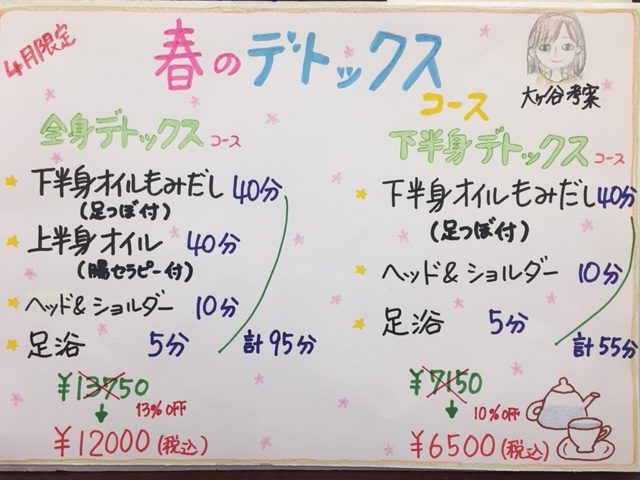 4月限定
春のデトックス
コース
大ヶ谷考案
全身デトックス コース
下半身オイルもみだし 40分
(足つぼ付)
上半身オイル 40分
(腸セラピー付)
ヘッド&ショルダー 10分
足浴 5分
計95分
¥13750
13%OFF
¥12000(税込)
下半身デトックス コース
下半身オイルもみだし 40分
(足つぼ付)
ヘッド&ショルダー 10分
足浴 5分
計55分
¥7150
10%OFF
¥6500(税込)